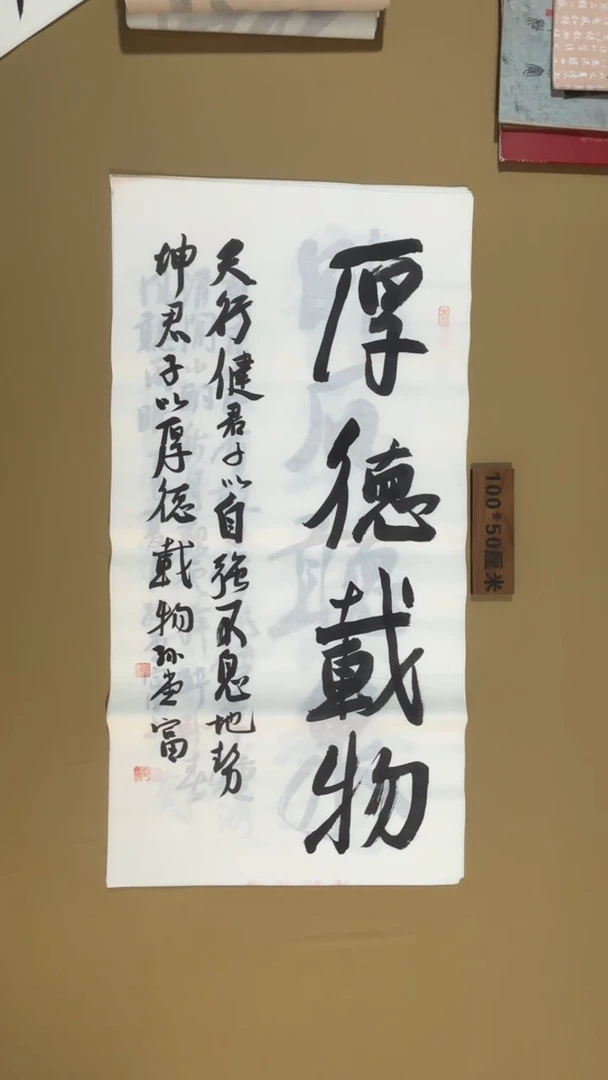 厚德載物
天行健君子以自強不息地勢
坤君子以厚德載物孙尝富
100*50厘米